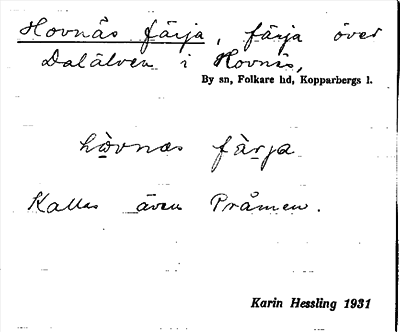 Hovnäs färja, färja över
Dalälven i Hovnäs,
By sn, Folkare hd, Kopparbergs l.
hòvnäs fàrja
Kallas även Pråmen.
Karin Hessling 1931